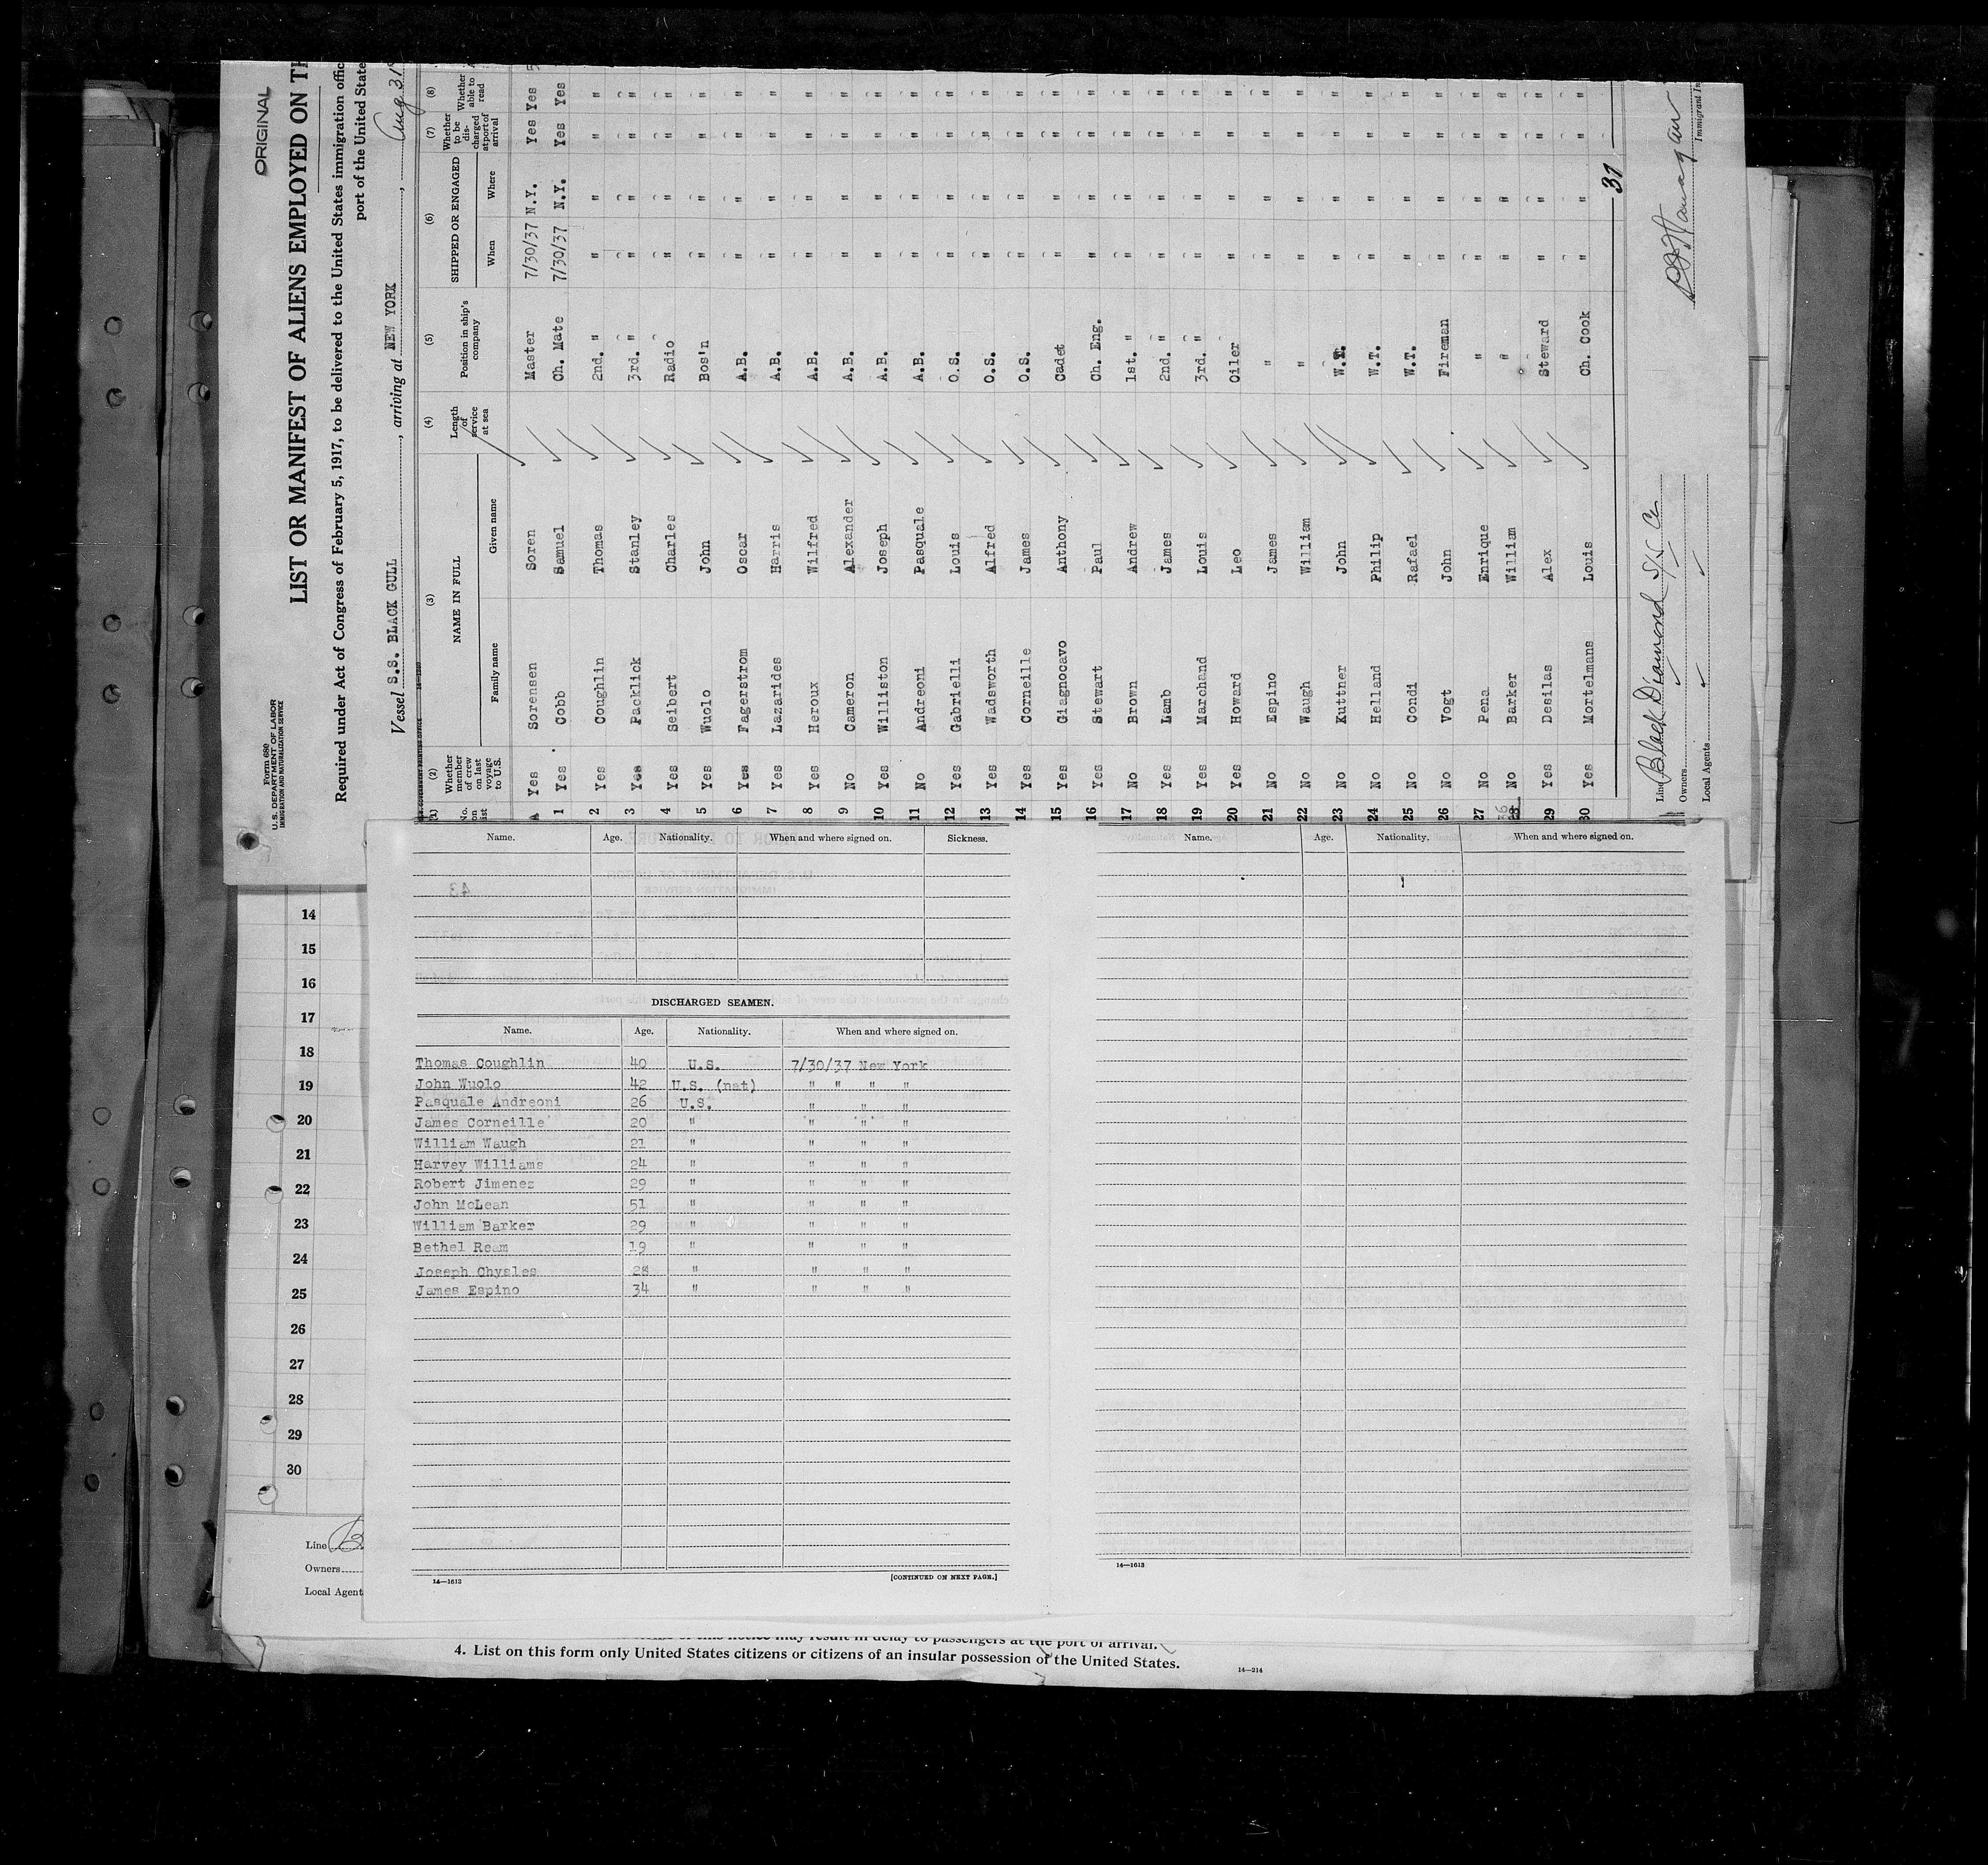 ORIGINAL
Form 680
U.S. DEPARTMENT OF LABOR
IMMIGRATION AND NATURALIZATION SERVICE
LIST OR MANIFEST OF ALIENS EMPLOYED ON TH
Required under Act of Congress of February 5, 1917, to be delivered to the United States immigration offic
port of the United State
Vessel S.S. BLACK GULL, arriving at NEW YORK, Aug 31
(1) (2) (3) (4) (5) (6) (7) (8)
No. on list Whether member of crew on last voyage to U.S. NAME IN FULL Family name Given name Length of service at sea Position in ship's company SHIPPED OR ENGAGED When Where Whether to be discharged at port of arrival Whether able to read
Yes Sorensen Soren Master 7/30/37 N.Y. Yes Yes 5
1 Yes Cobb Samuel Ch. Mate 7/30/37 N.Y. Yes Yes
2 Yes Coughlin Thomas 2nd. " " " " "
3 Yes Packlick Stanley 3rd. " " " " "
4 Yes Seibert Charles Radio " " " "
5 Yes Wuolo John Bos'n " " " "
6 Yes Fagerstrom Oscar A.B. " " " "
7 Yes Lazarides Harris A.B. " " " "
8 Yes Heroux Wilfred A.B. " " " "
9 No Cameron Alexander A.B. " " " "
10 Yes Williston Joseph A.B. " " " "
11 No Andreoni Pasquale A.B. " " " "
12 Yes Gabrielli Louis O.S. " " " "
13 Yes Wadsworth Alfred O.S. " " " "
14 Yes Corneille James O.S. " " " "
15 Yes Giagnocavo Anthony Cadet " " " "
16 Yes Stewart Paul Ch. Eng. " " " "
17 No Brown Andrew 1st. " " " " "
18 Yes Lamb James 2nd. " " " " "
19 Yes Marchand Louis 3rd. " " " " "
20 Yes Howard Leo Oiler " " " "
21 No Espino James " " " " "
22 No Waugh William " " " " "
23 No Kuttner John W.T. " " " "
24 No Helland Philip W.T. " " " "
25 No Condi Rafael W.T. " " " "
26 No Vogt John Fireman " " " "
27 No Pena Enrique " " " " "
28 No Barker William " " " " "
29 Yes Desilas Alex Steward " " " "
30 Yes Mortelmans Louis Ch. Cook " " " "
31
Line Black Diamond S/S Co
Owners
Local Agents
Immigrant In
Name. Age. Nationality. When and where signed on. Sickness.
DISCHARGED SEAMEN.
Name. Age. Nationality. When and where signed on.
Thomas Coughlin 40 U.S. 7/30/37 New York
John Wuolo 42 U.S. (nat) " " " "
Pasquale Andreoni 26 U.S. " " "
James Corneille 20 " " " "
William Waugh 21 " " " "
Harvey Williams 24 " " " "
Robert Jimenez 29 " " " "
John McLean 51 " " " "
William Barker 29 " " " "
Bethel Ream 19 " " " "
Joseph Chysles " " " "
James Espino 34 " " " "
14—1613
[CONTINUED ON NEXT PAGE.]
Name. Age. Nationality. When and where signed on.
14—1613
14
15
16
17
18
19
20
21
22
23
24
25
26
27
28
29
30
Line B
Owners
Local Agent
of this notice may result in delay to passengers at the port of arrival.
4. List on this form only United States citizens or citizens of an insular possession of the United States.
14—314